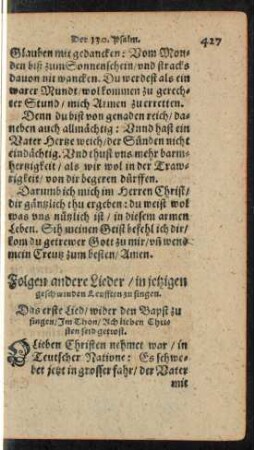 Der 130. Psalm. 427
Glauben mit gedancken: Vom Mon-
den biß zum Sonnenschein/ vnd stracks
dauon nit wancken. Du werdest als ein
warer Mundt/ wol kommen zu gerech-
ter Stund/ mich Armen zu erretten.
Denn du bist von genaden reich/ da-
neben auch allmächtig: Vnnd hast ein
Vater Hertze weich/ der Sünden nicht
eindächtig. Vnd thust vns mehr barm-
hertzigkeit/ als wir wol in der Traw-
rigkeit/ von dir begeren dürffen.
Darumb ich mich im Herren Christ/
dir gäntzlich thu ergeben: du weist wol
was vns nützlich ist/ in diesem armen
Leben. Sih meinen Geist befehl ich dir/
kom du getrewer Gott zu mir/ vñ wens
mein Creutz zum besten/ Amen.
Folgen andere Lieder/ in jetzigen
geschwinden Leufften zu singen.
Das erste Lied/ wider den Bapst zu
singen/ Im Thon/ Ach lieben Chri-
sten seid getrost.
O Lieben Christen nehmet war/ in
Teutscher Natione: Es schwe-
bet jetzt in grosser fahr/ der Vater
mit